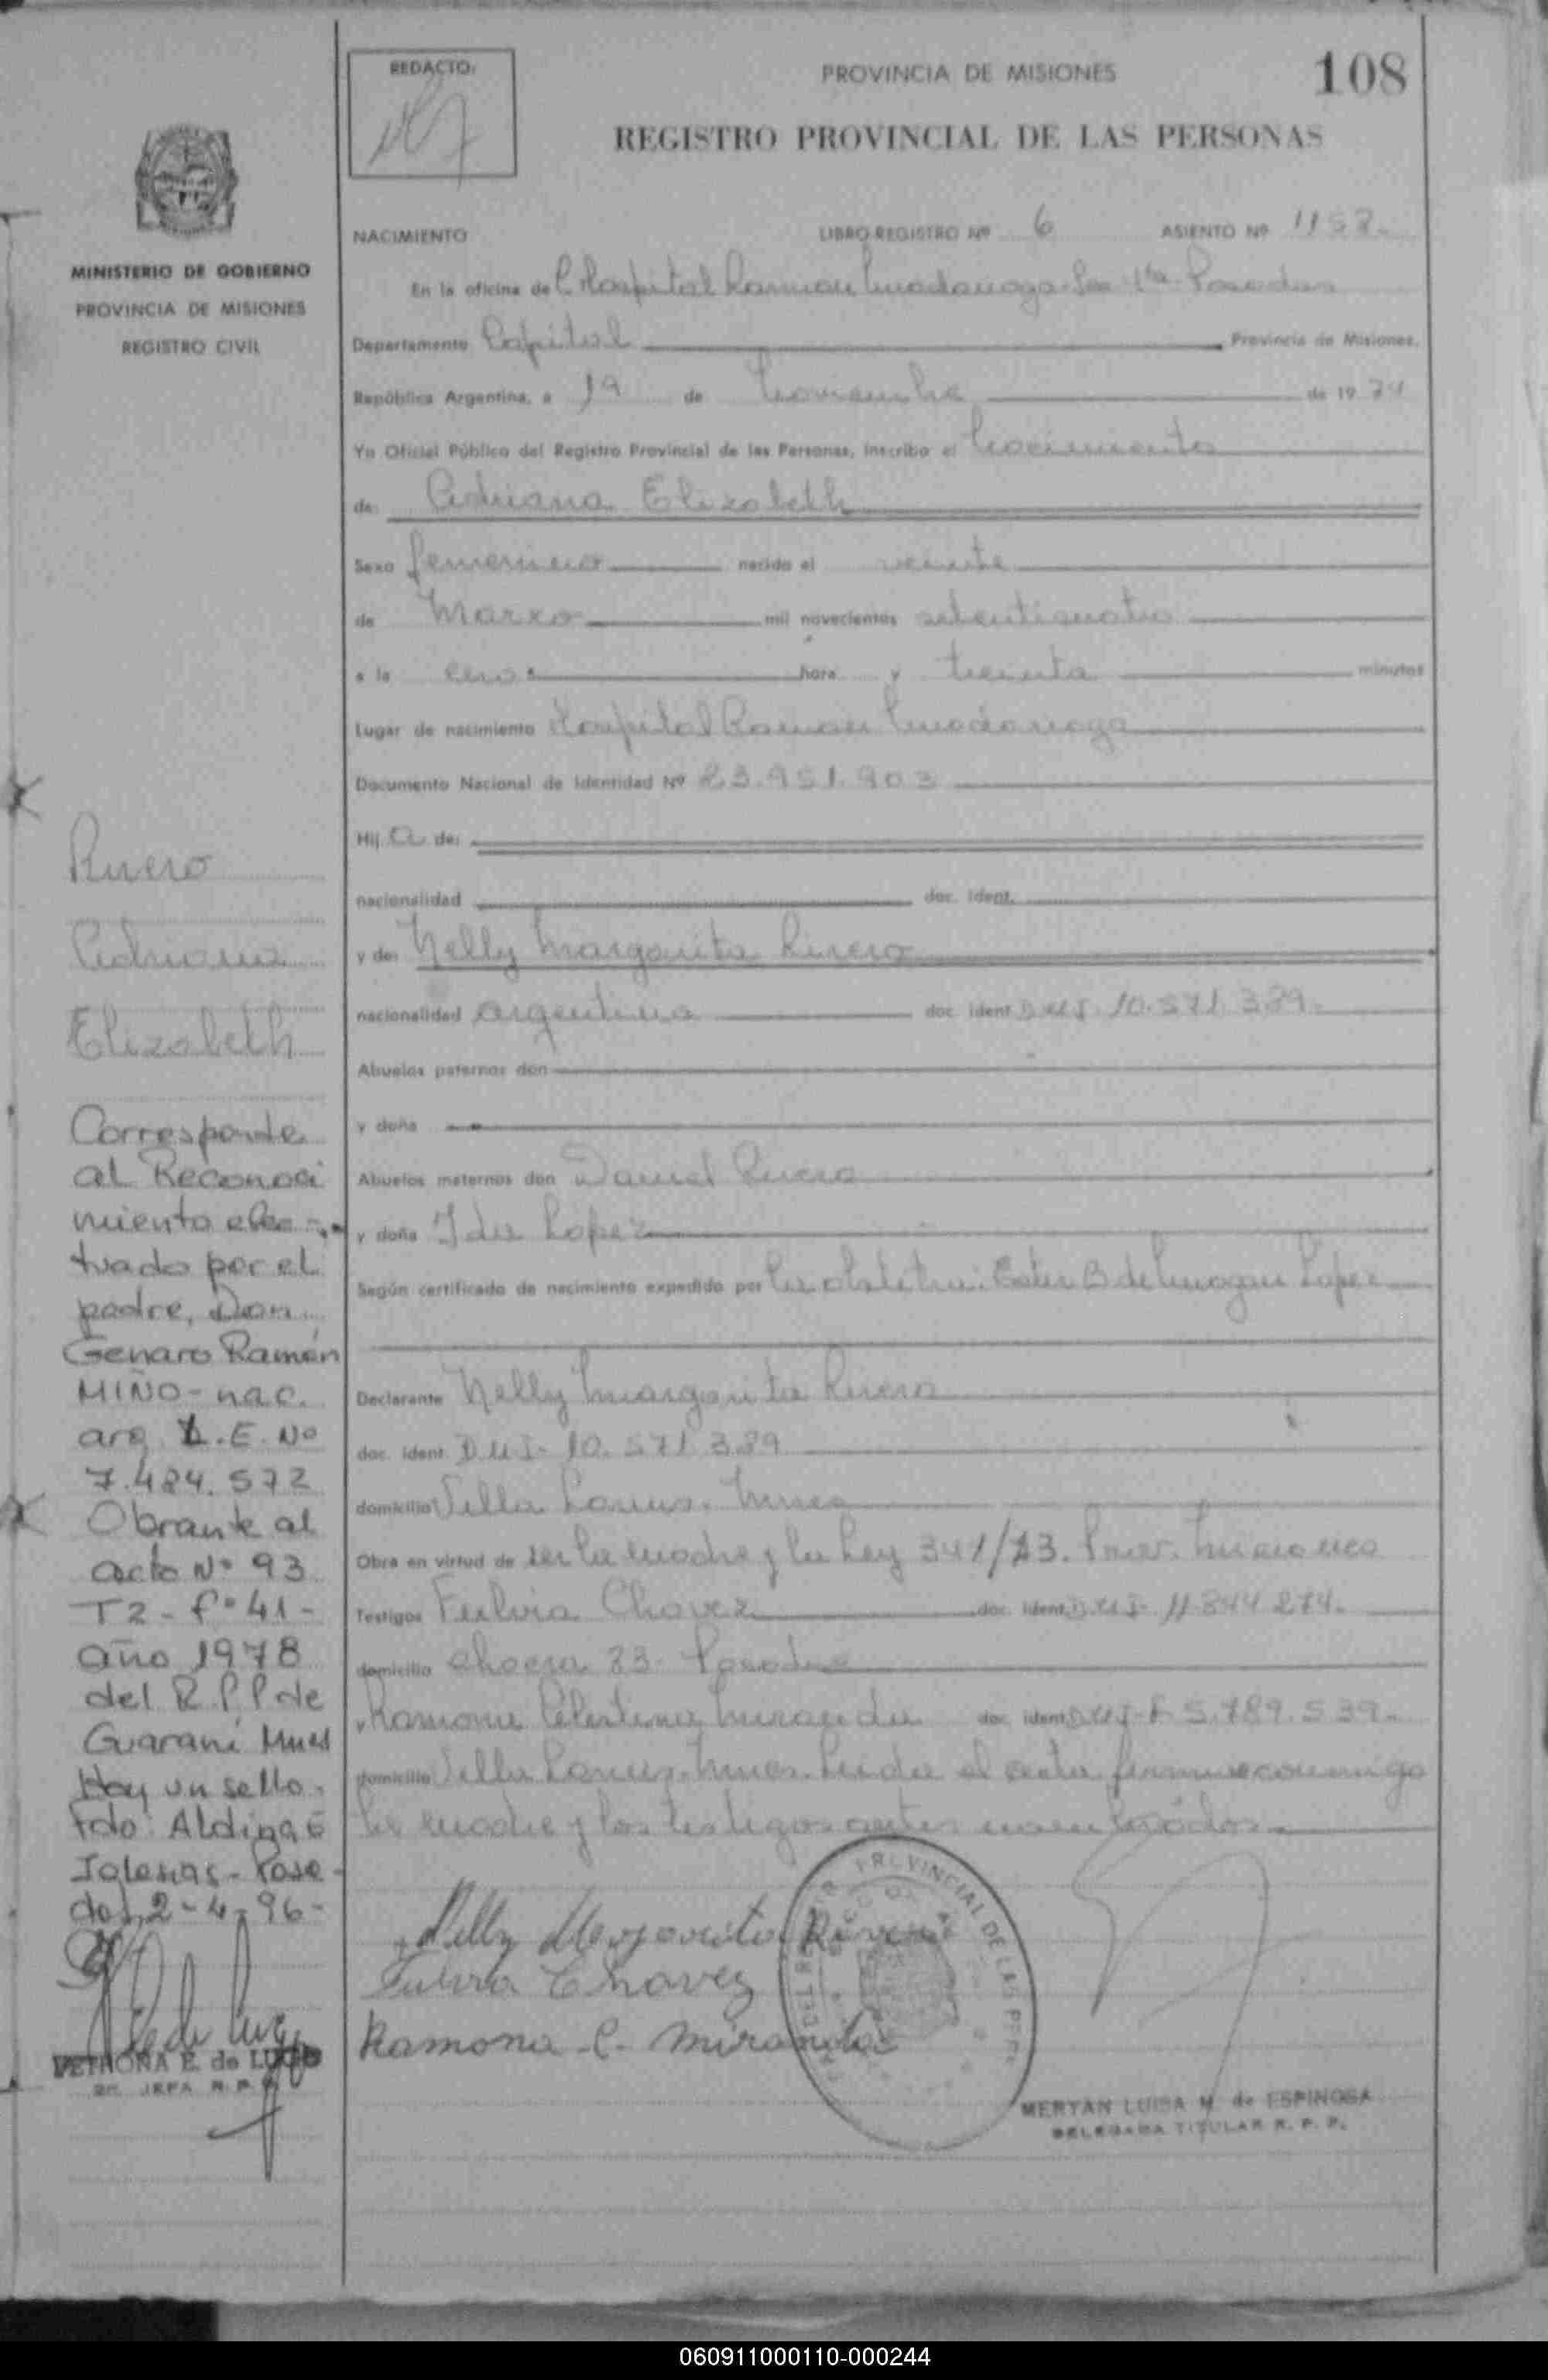 REDACTO:
PROVINCIA DE MISIONES
108
REGISTRO PROVINCIAL DE LAS PERSONAS
MINISTERIO DE GOBIERNO
PROVINCIA DE MISIONES
REGISTRO CIVIL
NACIMIENTO LIBRO-REGISTRO Nº 6 ASIENTO Nº 1158.
En la oficina de Hospital Ramon Madariaga Sec 1ta Posadas
Departamento Capital Provincia de Misiones.
República Argentina, a 19 de Noviembre de 19 74
Yo Oficial Público del Registro Provincial de las Personas, inscribo el Nacimiento
de: Adriana Elizabeth
Sexo femenino nacido el veinte
de Marzo mil novecientos setenticuatro
a la cero hora y treinta minutos
Lugar de nacimiento Hospital Ramon Madariaga
Documento Nacional de Identidad Nº 23.951.903
Hij a de:
nacionalidad doc. ident.
y de: Nelly Margarita Rivero
nacionalidad argentina doc. ident. D.U.I. 10.571.389.
Abuelos paternos don
y doña
Abuelos maternos don Daniel Rivero
y doña Ida Lopez
Según certificado de nacimiento expedido por la obstetra: Ester B de Lopez
Declarante Nelly Margarita Rivero
doc. ident. D.U.I- 10.571.389
domicilio Villa Lanus. Mnes
Obra en virtud de ser la madre y la Ley 341/73.
Testigos Fulvia Chavez doc. ident. D.U.I- 11.844.274.
domicilio chacra 33- Posadas
y Ramona Celestina Miranda doc. ident. D.U.I-F 5.789.539.
domicilio Villa Lanus. Mnes. Leida el acta firman conmigo
la madre y los testigos antes nombrados.
Nelly Margarita Rivero
Fulvia Chavez
Ramona C. Miranda
PROVINCIAL DE LAS
MERYAN LUISA M. de ESPINOSA
DELEGADA TITULAR R. P. P.
Rivero
Adriana
Elizabeth
Corresponde
al Reconoci
miento efec-
tuado por el
padre, Don
Genaro Ramón
MIÑO- nac.
arg. L.E. Nº
7.484.572
Obrante al
acta Nº 93
T2- fº 41-
año 1978
del R.P.P de
Guaraní Mnes
Hay un sello.
Fdo: Aldina E
Iglesias- Posa-
das, 2-4-96-
PETRONA E. de LUGO
JEFA R. P. P.
060911000110-000244